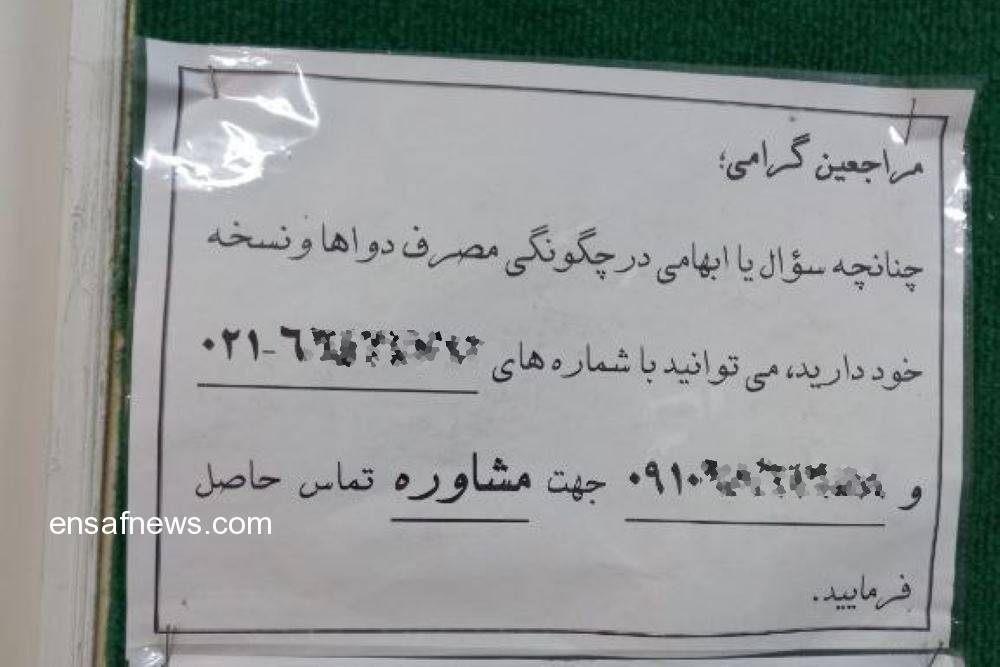 مراجعین گرامی؛
چنانچه سؤال یا ابهامی در چگونگی مصرف دواها و نسخه
خود دارید، می توانید با شماره های ۰۲۱-۶
و ۰۹۱۰ جهت مشاوره تماس حاصل
فرمایید.
ensafnews.com